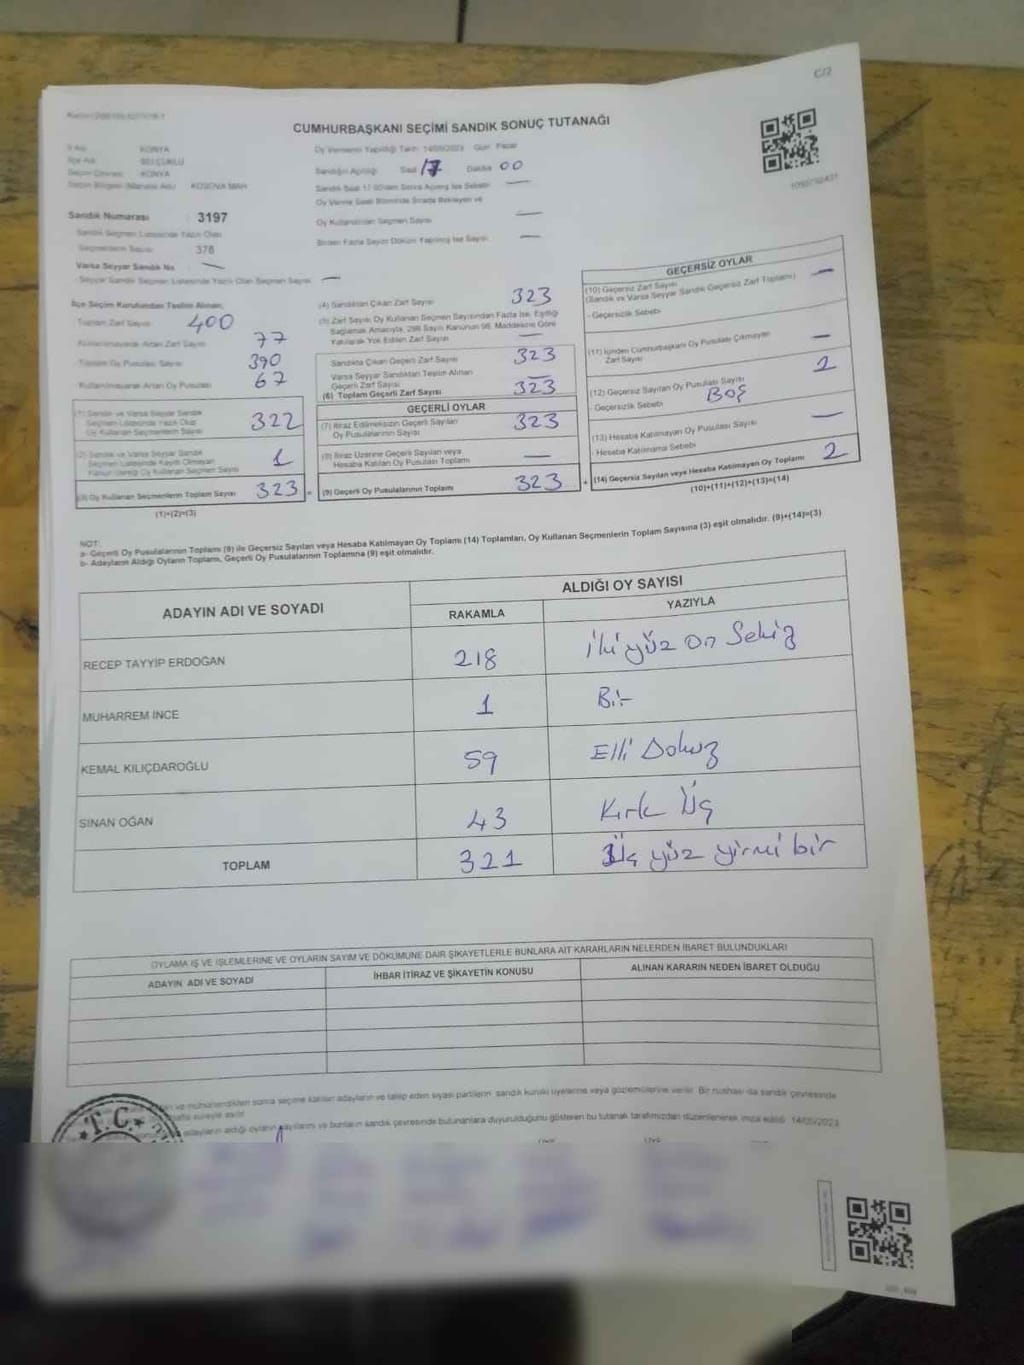 C/2
CUMHURBAŞKANI SEÇİMİ SANDIK SONUÇ TUTANAĞI
İl Adı KONYA
İlçe Adı SELÇUKLU
Seçim Çevresi KONYA
Seçim Bölgesi (Mahalle Adı) KOSOVA MAH
Oy Vermenin Yapıldığı Tarih 14/05/2023 Gün Pazar
Sandığın Açıldığı Saat 17 Dakika 00
Sandık Saat 17.00'den Sonra Açılmış İse Sebebi —
Oy Verme Saati Bitiminde Sırada Bekleyen ve
Oy Kullandırılan Seçmen Sayısı —
Birden Fazla Sayım Döküm Yapılmış İse Sayısı —
Sandık Numarası : 3197
Sandık Seçmen Listesinde Yazılı Olan
Seçmenlerin Sayısı 378
Varsa Seyyar Sandık No —
Seyyar Sandık Seçmen Listesinde Yazılı Olan Seçmen Sayısı —
İlçe Seçim Kurulundan Teslim Alınan;
Toplam Zarf Sayısı 400
Kullanılmayarak Artan Zarf Sayısı 77
Toplam Oy Pusulası Sayısı 390
Kullanılmayarak Artan Oy Pusulası 67
(1) Sandık ve Varsa Seyyar Sandık
Seçmen Listesinde Yazılı Olup
Oy Kullanan Seçmenlerin Sayısı 322
(2) Sandık ve Varsa Seyyar Sandık
Seçmen Listesinde Kayıtlı Olmayan
Kanun Gereği Oy Kullanan Seçmen Sayısı 1
(3) Oy Kullanan Seçmenlerin Toplam Sayısı 323 =
(1)+(2)=(3)
(4) Sandıktan Çıkan Zarf Sayısı 323
(5) Zarf Sayısı Oy Kullanan Seçmen Sayısından Fazla İse, Eşitliği
Sağlamak Amacıyla, 298 Sayılı Kanunun 98. Maddesine Göre
Yakılarak Yok Edilen Zarf Sayısı —
Sandıkta Çıkan Geçerli Zarf Sayısı 323
Varsa Seyyar Sandıktan Teslim Alınan
Geçerli Zarf Sayısı —
(6) Toplam Geçerli Zarf Sayısı 323
GEÇERLİ OYLAR
(7) İtiraz Edilmeksizin Geçerli Sayılan
Oy Pusulalarının Sayısı 323
(8) İtiraz Üzerine Geçerli Sayılan veya
Hesaba Katılan Oy Pusulası Toplamı —
(9) Geçerli Oy Pusulalarının Toplamı 323 +
GEÇERSİZ OYLAR
(10) Geçersiz Zarf Sayısı —
(Sandık ve Varsa Seyyar Sandık Geçersiz Zarf Toplamı)
- Geçersizlik Sebebi
(11) İçinden Cumhurbaşkanı Oy Pusulası Çıkmayan
Zarf Sayısı —
(12) Geçersiz Sayılan Oy Pusulası Sayısı 2
- Geçersizlik Sebebi BOŞ
(13) Hesaba Katılmayan Oy Pusulası Sayısı —
- Hesaba Katılmama Sebebi
(14) Geçersiz Sayılan veya Hesaba Katılmayan Oy Toplamı 2
(10)+(11)+(12)+(13)=(14)
NOT:
a- Geçerli Oy Pusulalarının Toplamı (9) ile Geçersiz Sayılan veya Hesaba Katılmayan Oy Toplamı (14) Toplamları, Oy Kullanan Seçmenlerin Toplam Sayısına (3) eşit olmalıdır. (9)+(14)=(3)
b- Adayların Aldığı Oyların Toplamı, Geçerli Oy Pusulalarının Toplamına (9) eşit olmalıdır.
ADAYIN ADI VE SOYADI ALDIĞI OY SAYISI
RAKAMLA YAZIYLA
RECEP TAYYİP ERDOĞAN 218 İki yüz on Sekiz
MUHARREM İNCE 1 Bir
KEMAL KILIÇDAROĞLU 59 Elli Dokuz
SİNAN OĞAN 43 Kırk Üç
TOPLAM 321 Üç yüz yirmi bir
OYLAMA İŞ VE İŞLEMLERİNE VE OYLARIN SAYIM VE DÖKÜMÜNE DAİR ŞİKAYETLERLE BUNLARA AİT KARARLARIN NELERDEN İBARET BULUNDUKLARI
ADAYIN ADI VE SOYADI İHBAR İTİRAZ VE ŞİKAYETİN KONUSU ALINAN KARARIN NEDEN İBARET OLDUĞU
ve mühürlendikten sonra seçime katılan adayların ve talep eden siyasi partilerin sandık kurulu üyelerine veya gözlemcilerine verilir. Bir nüshası da sandık çevresinde
hafta süreyle asılır.
adayların aldığı oyların sayılarını ve bunların sandık çevresinde bulunanlara duyurulduğunu gösteren bu tutanak tarafımızdan düzenlenerek imza edildi. 14/05/2023
T.C.